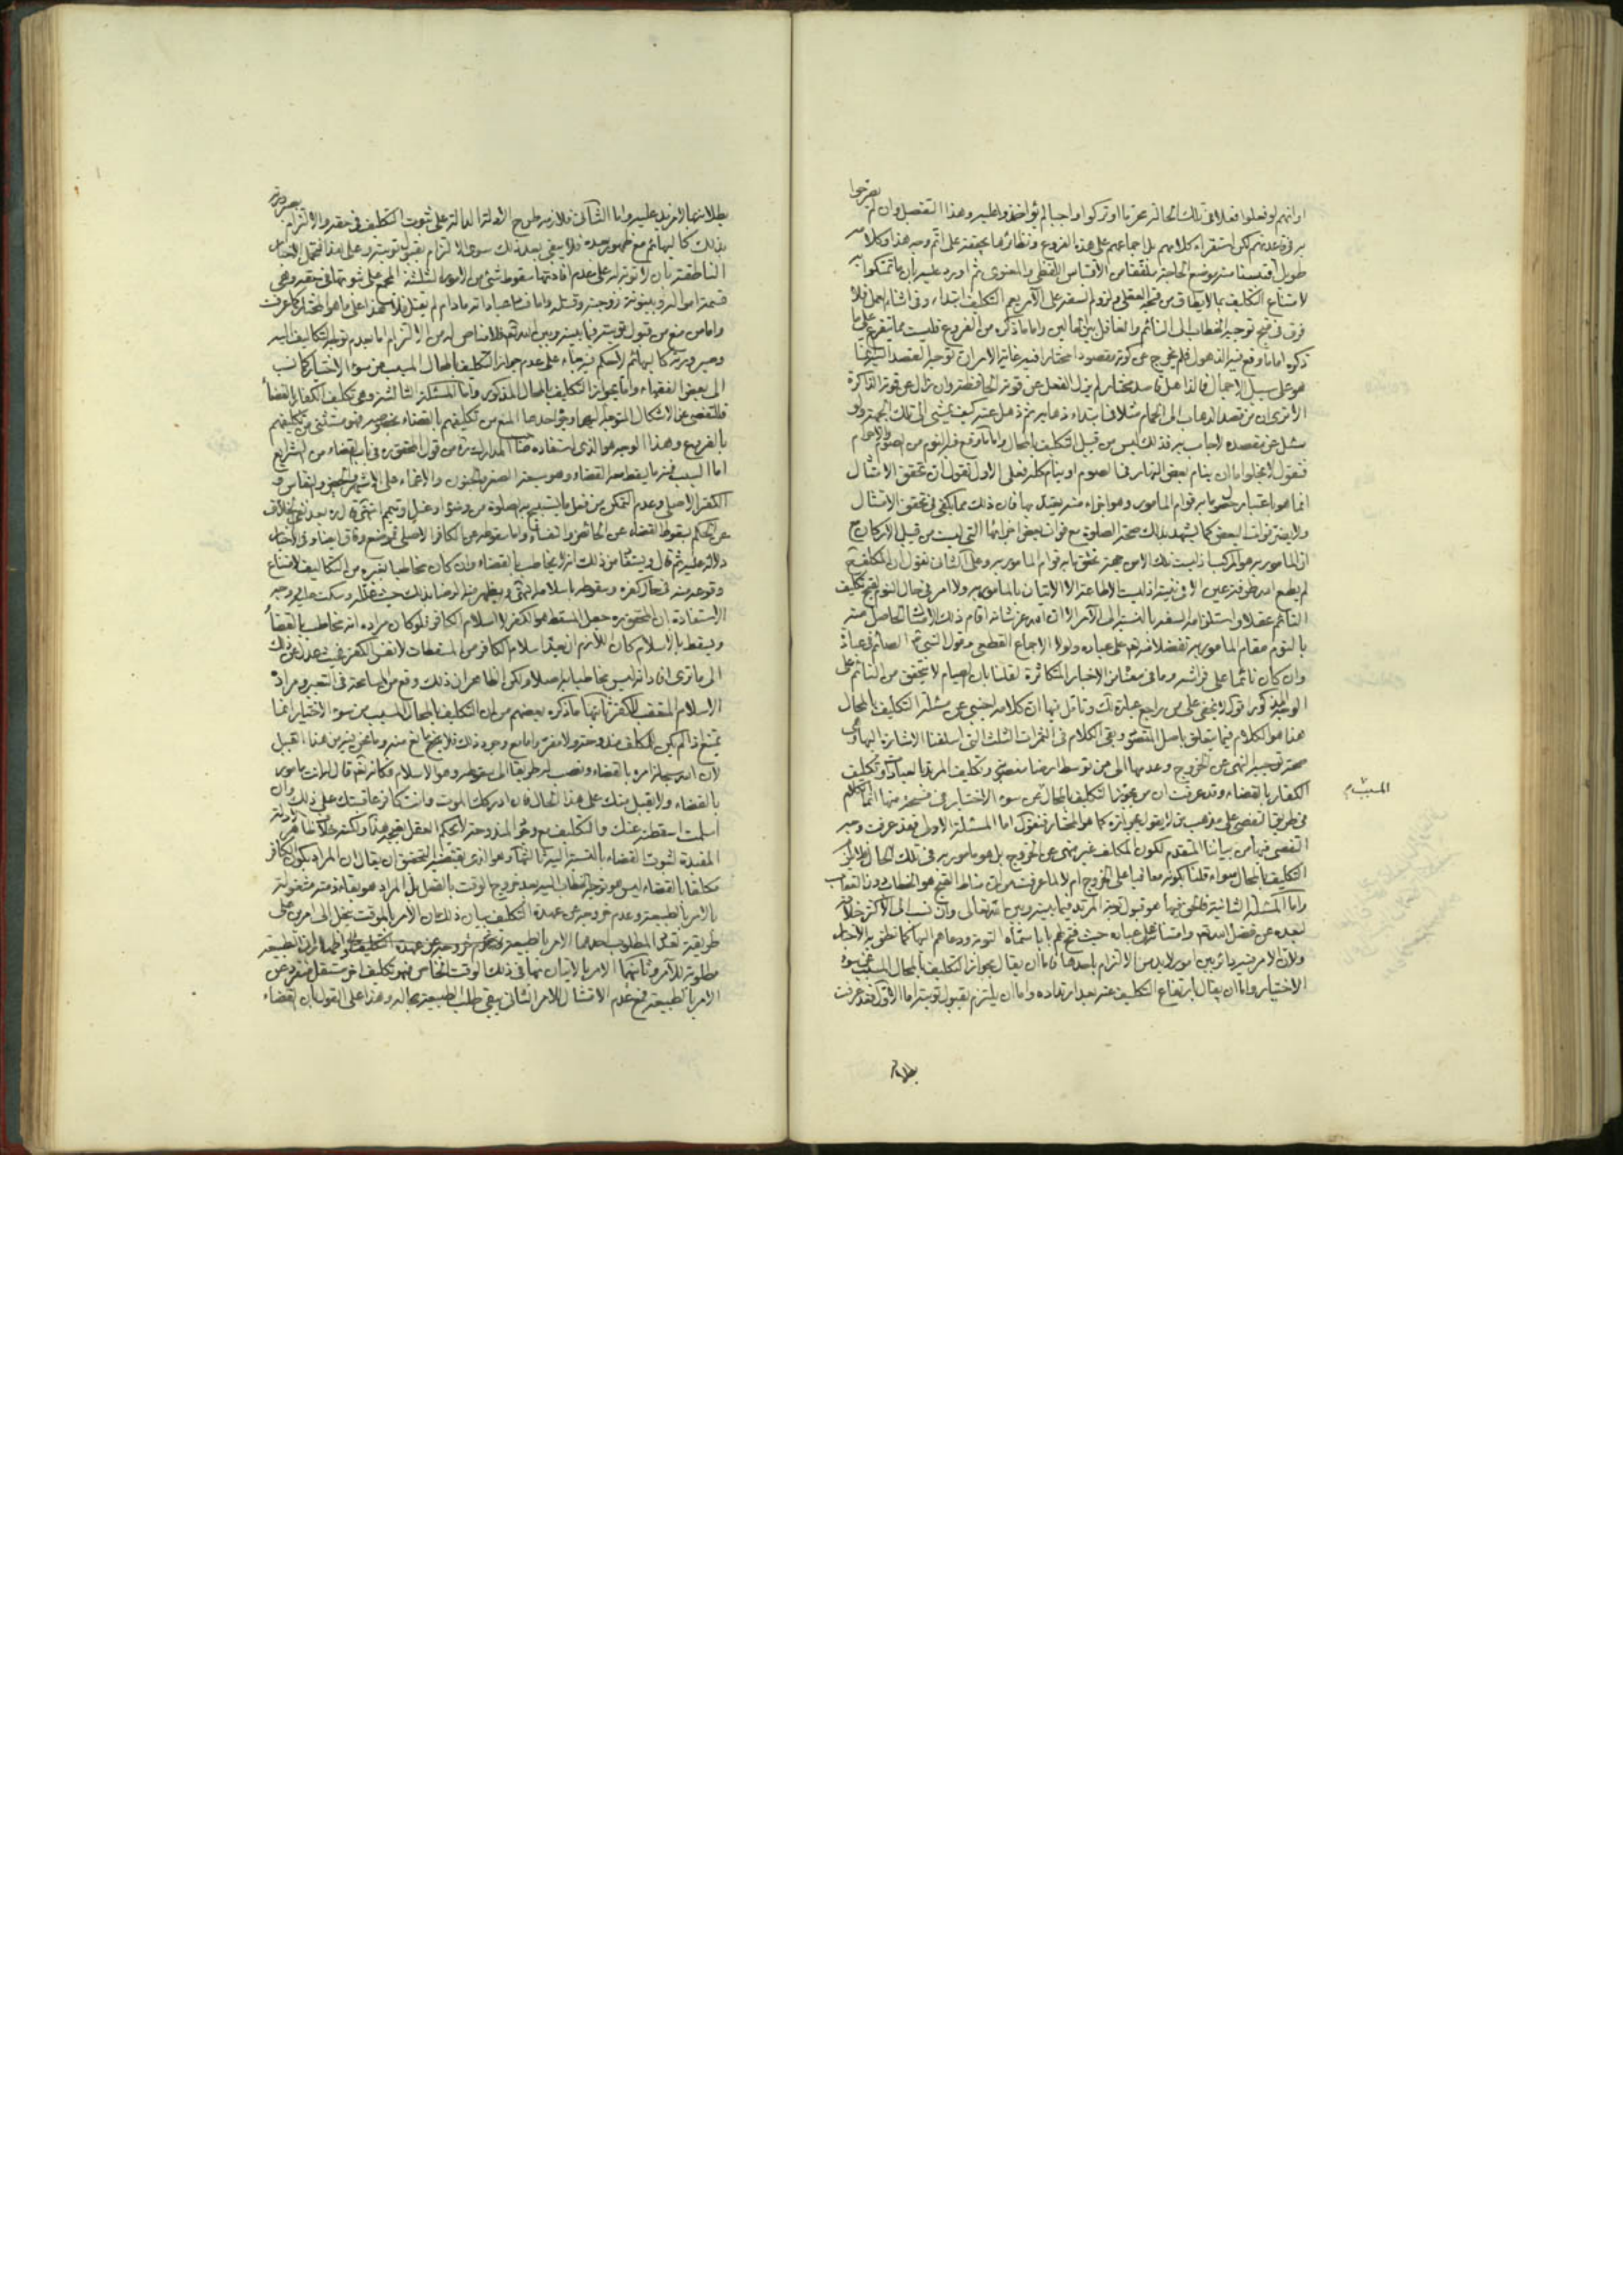 يصرحوا
او انهم لو فعلوا فعلا فى تلك الحالة محرما او تركوا واجبا لم يؤاخذوا عليه وهذا التفصيل وان لم
به فى قاعدتهم لكن استقراء كلامهم بل اجماعهم على هذه الفروع ونظائرها يحققه على اتم وجه هذا وكلامه
طويل اقتبسنا منه موضع الحاجة اللفظى والمعنوى ثم اورد عليه بان ما تمسكوا به
لامتناع التكليف بما لا يطاق من قبحه العقلى ولزوم السفه على الآمر يعم التكليف ابتداء وفى اثناء العمل فلا
فرق فى قبح توجيه الخطاب الى النائم والغافل بين الحالين واما ما ذكره من الفروع فليست مما يتفرع على ما
ذكره اما ما وقع فيه الذهول فلم يخرج عن كونه مقصودا مختارا فيه غاية الامر ان توجيه القصد اليه
هو على سبيل الاجمال فالذاهل قاصد مختار لم يزل الفعل عن قوته الحافظة وان زال عن قوته الذاكرة
الا ترى ان من قصد الذهاب الى الحمام مثلا فى ابتداء ذهابه ثم ذهل عنه كيف يمشى الى تلك الجهة ولو
سئل عن مقصده لاجاب به فذلك ليس من قبيل التكليف بالمحال واما ما وقع فيه النوم من الصوم والاحرام
فنقول لا يخلو اما ان ينام بعض النهار فى الصوم او ينام كله فعلى الاول نقول ان تحقق الامتثال
انما هو باعتبار حصول ما به قوام المامور به وهو اجزاء منه يعتد بها فان ذلك مما يكفى فى تحقق الامتثال
ولا يضر فوات البعض كما يشهد بذلك صحة الصلوة مع فوات بعض اجزائها التى ليست من قبيل الاركان مع
ان المامور به هو المركب اذ ليست تلك الا من جهة تحقق ما به قوام المامور به وعلى الثانى نقول ان المكلف
لم يطع امره طرفة عين لا فى نيته اذ ليست الاطاعة الا الاتيان بالمامور به ولا امر فى حال النوم لقبح تكليف
النائم عقلا واستلزامه السفه بالنسبة الى الآمر الا ان الآمر عز شانه اقام ذلك الامتثال الحاصل منه
بالنوم مقام المامور به تفضلا منه على عباده ولولا الاجماع القطعى وقول النبى ص الصائم فى عبادة
وان كان نائما على فراشه وما فى معناه من الاخبار المتكاثرة لقلنا بان الصيام لا يتحقق من النائم على
الوجه المذكور اقول لا يخفى على من راجع عبارة وتامل فيها ان كلامه اجنبى عن مسئلة التكليف بالمحال
هذا هو الكلام فيما يتعلق باصل المقصود وبقى الكلام فى الثمرات الثلث التى اسلفنا الاشارة اليها وهى
صحة توجيه النهى عن الخروج وعدمها الى من توسط ارضا مغصوبة وتكليف المرتد بالعبادات وتكليف
الكفار بالقضاء وقد عرفت ان من يجوز التكليف بالمحال عن سوء الاختيار فى فسحة منها انما الكلام
فى طريق التفصى على مذهب من لا يقول بجوازه كما هو المختار فنقول اما المسئلة الاولى فقد عرفت وجه
التفصى فيها من بياننا المتقدم لكون المكلف غير منهى عن الخروج بل هو مامور به فى تلك الحال فلا يلزم
التكليف بالمحال سواء قلنا بكونه معاقبا على الخروج ام لا لما عرفت من ان مناط القبح هو الخطاب دون العقاب
واما المسئلة الثانية فالحق فيها هو قبول توبة المرتد فيما بينه وبين الله تعالى وان نسب الى الاكثر خلافه
لبعده عن فضل الله تعالى وامتنانه على عباده حيث فتح لهم بابا سماه التوبة ودعاهم اليها كما نطق به الاخبار
ولان الامر فيه دائر بين امور لا بد من الالتزام باحدها فاما ان يقال بجواز التكليف بالمحال المسبب عن سوء
الاختيار واما ان يقال بارتفاع التكليف عنه بعد ارتداده واما ان يلتزم بقبول توبته اما الاول فقد عرفت
بطلانهما
المسبب
بطلانه بما لا مزيد عليه واما الثانى فلازمه طرح الادلة الدالة على ثبوت التكليف فى حقه والالتزام بصيرورته
بذلك كالبهائم مع ظهور بعده فلا يبقى بعد ذلك سوى الالتزام بقبول توبته وعلى هذا فتحمل الاخبار
الناطقة بان لا توبة له على عدم افادتها سقوط شئ من الامور الثلثة المجمع على ثبوتها فى حقه وهى
قسمة امواله وبينونة زوجته وقتله واما فساد عباداته ما دام لم يقتل فلا هذا على ما هو المختار كما عرفت
واما من منع من قبول توبته فيما بينه وبين الله تعالى فلا مناص له من الالتزام اما بعدم توجه التكاليف اليه
وصيرورته كالبهائم لا حكم فيه بناء على عدم جواز التكليف بالمحال المسبب عن سوء الاختيار كما نسب
الى بعض الفقهاء واما بجواز التكليف بالمحال المذكور واما المسئلة الثالثة وهى تكليف الكفار بالقضاء
فللتفصى عن الاشكال المتوجه اليها وجوه احدها المنع من تكليفهم بالقضاء بخصوصه فهو مستثنى من تكليفهم
بالفروع وهذا الوجه هو الذى استفاده صاحب المدارك ره من قول المحقق ره فى باب القضاء من الشرايع
اما السبب فمنه ما يسقط معه القضاء وهو سبعة الصغر والجنون والاغماء على الاشهر والحيض والنفاس و
الكفر الاصلى وعدم التمكن من فعل ما يستبيح به الصلوة من وضوء او غسل او تيمم انتهى قال ره بعد نفى الخلاف
عن الحكم بسقوط القضاء عن الحائض والنفساء واما سقوطه عن الكافر الاصلى فموضع وفاق ايضا وفى الاخبار
دلالة عليه ثم قال ويستفاد من ذلك انه لا يخاطب بالقضاء وان كان مخاطبا بغيره من التكاليف لامتناع
وقوعه منه فى حال كفره وسقوطه باسلامه انتهى ويظهر منه الرضا بذلك حيث علله وسكت عليه ووجه
الاستفادة ان المحقق ره جعل المسقط هو الكفر لا اسلام الكافر فلو كان مراده انه مخاطب بالقضاء
ويسقط بالاسلام كان اللازم ان يعد اسلام الكافر من المسقطات لا نفس الكفر فحيث عدل عن ذلك
الى ما ترى افاد انه ليس مخاطبا به اصلا ولكن الظاهر ان ذلك وقع من المسامحة فى التعبير ومراده
الاسلام المعقب للكفر ثانيها ما ذكره بعضهم من ان التكليف بالمحال المسبب من سوء الاختيار انما
يمتنع اذا لم يكن للمكلف مندوحة ولا مفر واما مع وجود ذلك فلا يقبح ولا مانع منه وما نحن فيه من هذا القبيل
لان الله سبحانه امره بالقضاء ونصب له طريقا الى سقوطه وهو الاسلام فكانه تعالى قال له انت مامور
بالقضاء ولا يقبل منك على هذا الحال فان ادركك الموت وانت كافر عاقبتك على ذلك وان
اسلمت اسقطته عنك والتكليف مع وجود المندوحة لا يحكم العقل بقبحه هذا ولكنه خلاف ظاهر الادلة
المفيدة لثبوت القضاء بالنسبة اليه ثالثها وهو الذى يقتضيه التحقيق ان يقال ان المراد بكون الكافر
مكلفا بالقضاء ليس هو توجه الخطاب اليه بعد خروج الوقت بالفعل بل المراد هو بقاء ذمته مشغولة
بالامر بالطبيعة وعدم خروجه عن عهدة التكليف بيان ذلك ان الامر بالموقت ينحل الى امرين على
طريقة تعدد المطلوب احدهما الامر بالطبيعة لان الطبيعة
مطلوبة للآمر وثانيهما الامر بالاتيان بها فى ذلك الوقت الخاص فهو تكليف اخر مستقل منفرد عن
الامر بالطبيعة فمع عدم الامتثال للامر الثانى يبقى طلب الطبيعة بحاله وهذا على القول بان القضاء